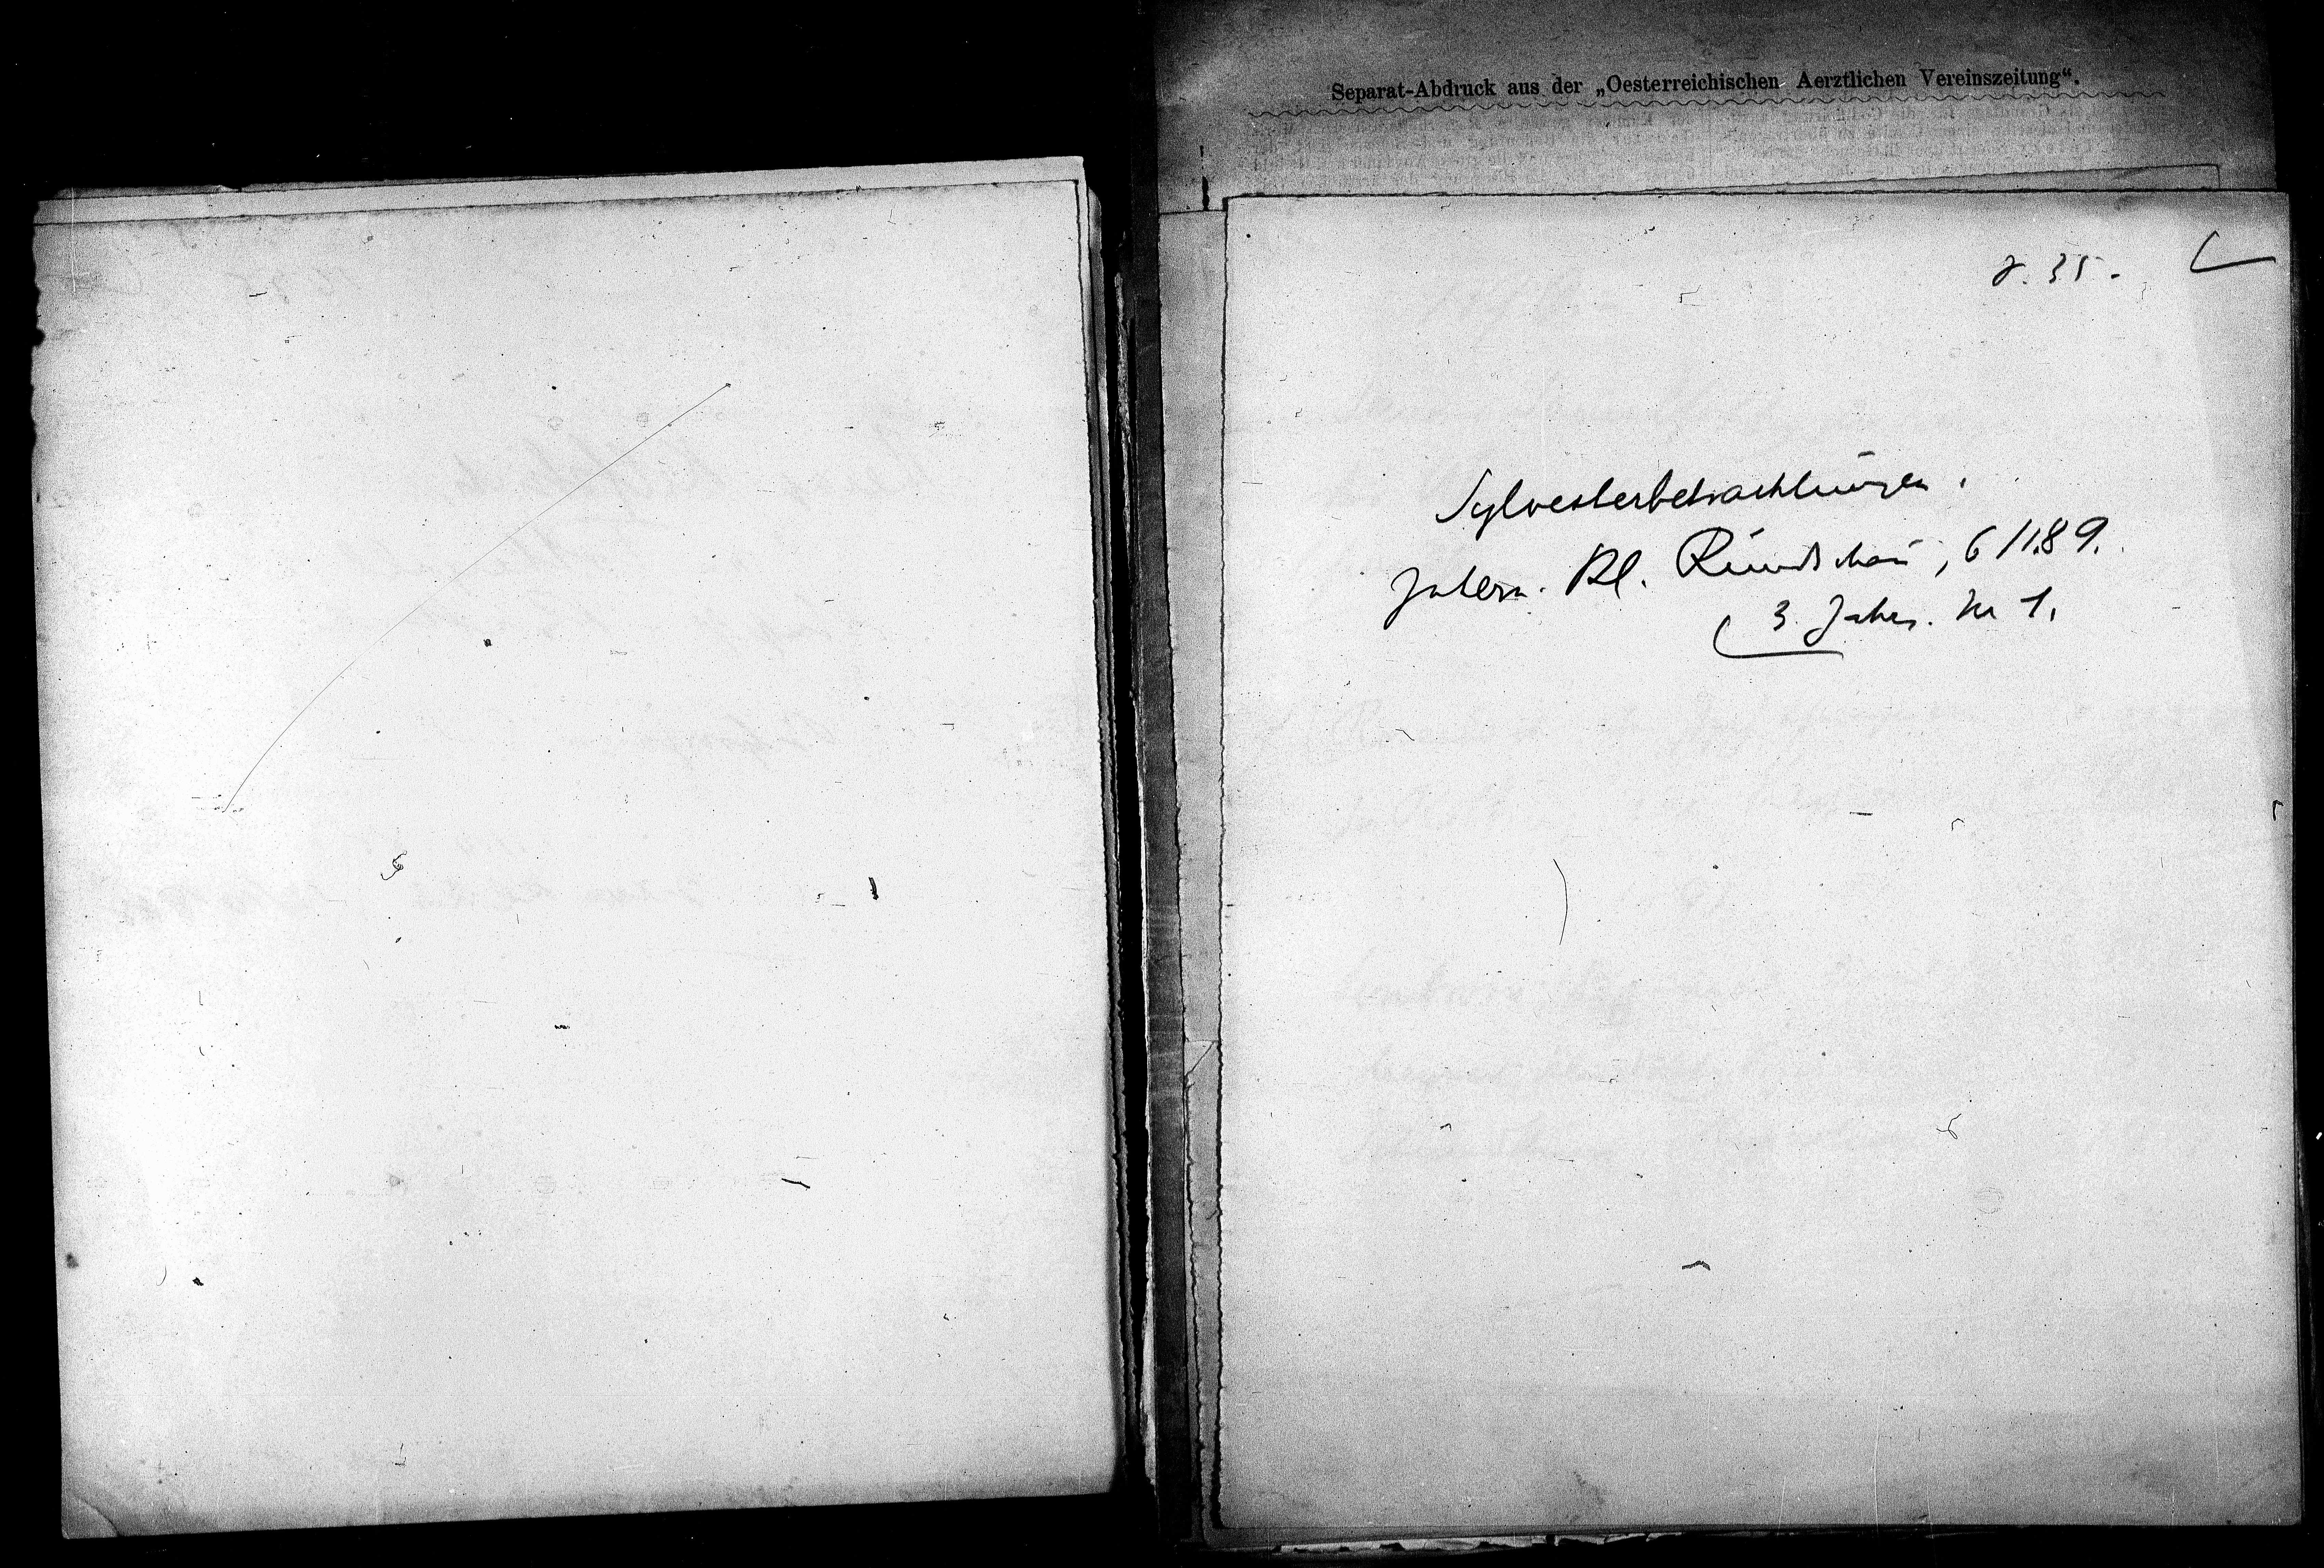 Separat-Abdruck aus der „Oesterreichischen Aerztlichen Vereinszeitung“.
γ. 35.
Sylvesterbetrachtungen.
Intern. Kl. Rundschau, 6/1.89.
3. Jahrg. Nr 1.